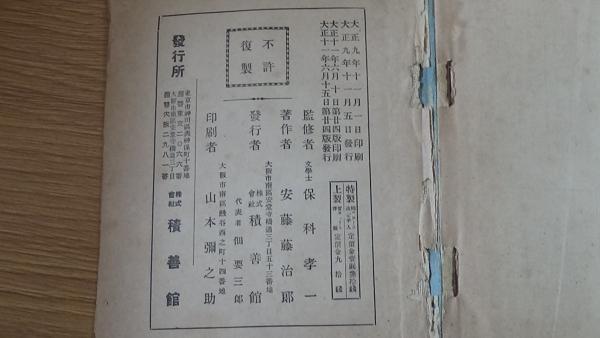 大正九年十一月一日印刷
大正九年十一月五日發行
大正十一年六月十日第廿四版印刷
大正十一年六月十五日第廿四版發行
特製
上製
定價金九拾錢
不許
復製
監修者 文學士 保科孝一
著作者 安藤藤治郎
大阪市南區安堂寺橋通三丁目五十三番地
發行者 株式會社 積善館
代表者 佃要三郎
大阪市南區鰻谷西之町十四番地
印刷者 山本彌之助
發行所
東京市神田區表神保町十番地
大阪市南區安堂寺橋通三丁目
株式會社 積善館